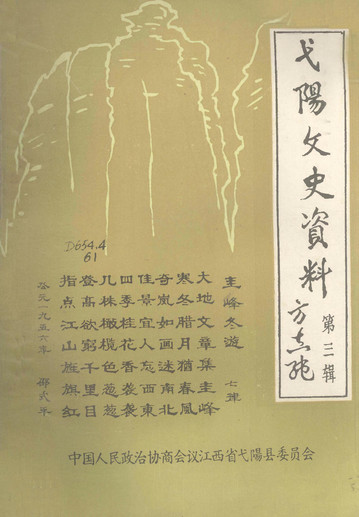 弋陽文史資料
第三辑
方志纯
圭峰冬遊 七律
大地文章集圭峰
寒冬腊月猶春風
奇嵐如画迷南北
佳景宜人忘西東
四季桂花香袭袭
几株橄榄色葱葱
登高欲窮千里目
指点江山旌旗红
公元一九五六年 邵式平
D654.4
61
中国人民政治协商会议江西省弋陽县委员会